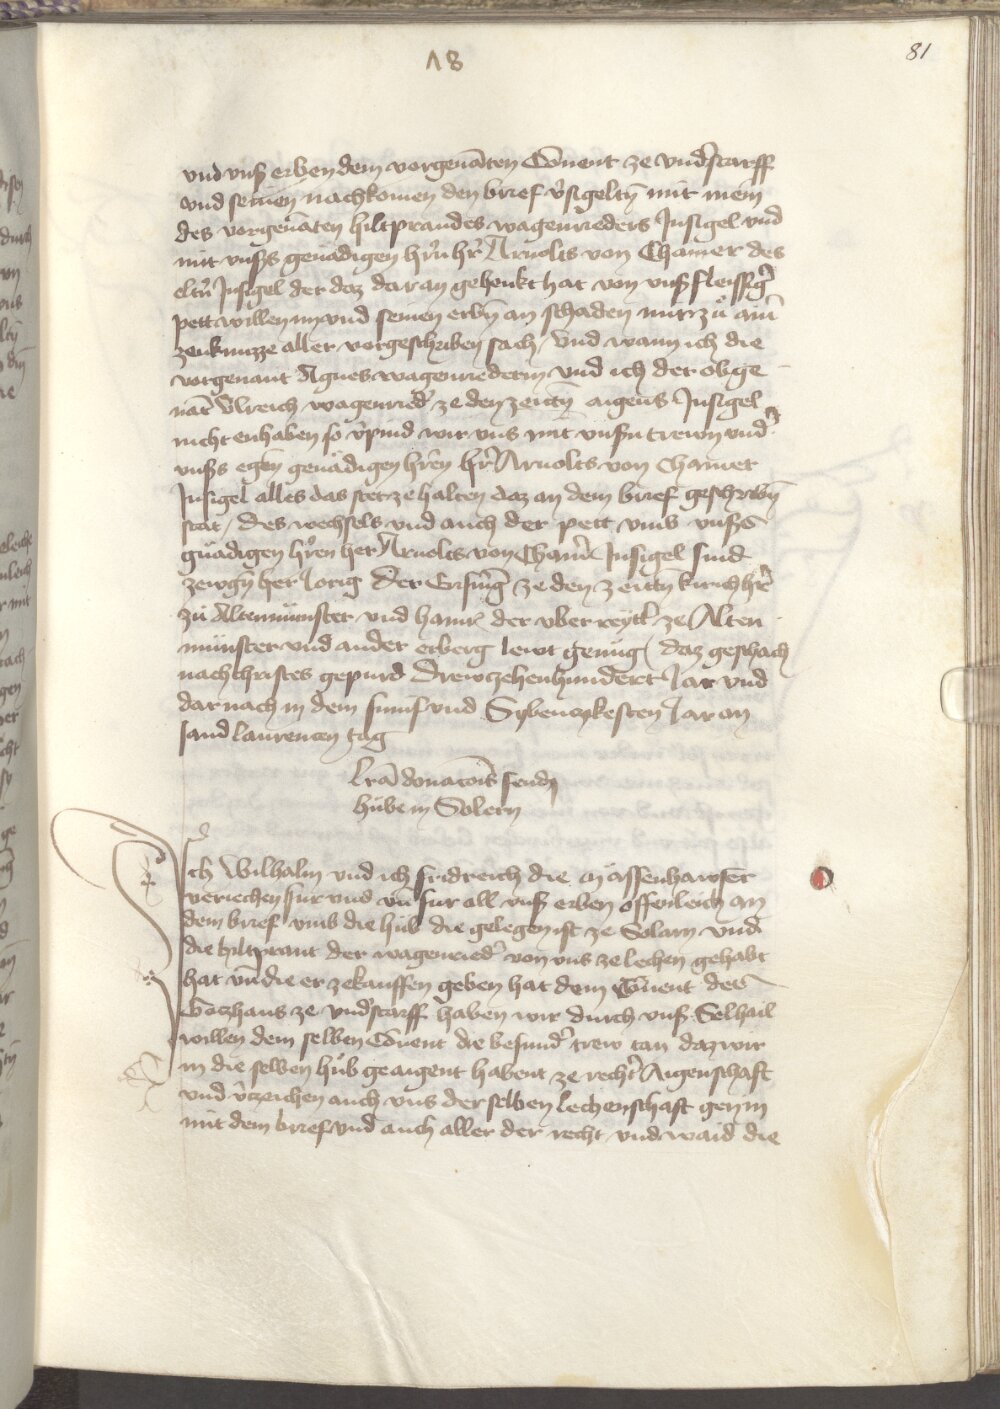 81
18
vnd vnß erben dem vorgenāten Conuent ze vnd̓starff
vnd seinen nachkomen den brief v̓sigeltn̄ mit mein
des vorgenāten hiltprandes wagenrieders Jnsigel vnd
mit vnßs genädigen hr̓n hr̓ Arnolts von Chamer des
eltn̓ Jnsigel der daz daran gehenkt hat von vnß fleissig̓
pett willen im vnd seinen erbn̄ an schaden nur zů ainē
zeuknuzze aller vorgeschriben sach / Vnd wann ich die
vorgenant Agnes wagenriederin vnd ich der obge
nāt Vlreich wagenried̓ ze den zeittn̄ aigens Jnsigel
nicht enhaben so v̓pind wir vns mit vnßn trewn vnd̓
vnßs egen̄ genädigen hr̄en hr̓ Arnolts von Chamer
Jnsigel alles das stet ze halten daz an dem brief geschribn̄
stat / des wechsels vnd auch der pett vmb vnßs
gnädigen hr̓en her Arnolts von Cham̓ Jnsigel sind
zewgn her Jorig der ze den zeittn̄ kirchhr̓
zu Altenmünster vnd der vber reytt̓ ze Alten
münster vnd ander erberg lewt genüg / daz geschach
nach christes gepurd Drewzehenhundert Jar vnd
dar nach in dem funf vnd Sybenczkesten Jar an
sand laurencen tag
lr̄a donacōis feudɉ
hube in Solern
Ich Wilhalm vnd ich fridreich die Mässenhawser
veriechen fur vnd vn̄ fur all vnß erben offenleich an
dem brief vmb die hub die gelegen ist ze Solarn vnd
die hiltprant der wagenried̓ von vns ze lechen gehabt
hat vnd die er ze kauffen geben hat dem Conuent des
Gotzhaus ze vnd̓starff haben wir durch vnß Selhail
willen dem selben Conuent die besund̓ trew tan daz wir
in die selben hůb geaigent habent ze recht̓ Aigenschaft
vnd v̓tzeichen auch vns der selben lechenschaft gen in
mit dem brief vnd auch aller der recht vnd waid die